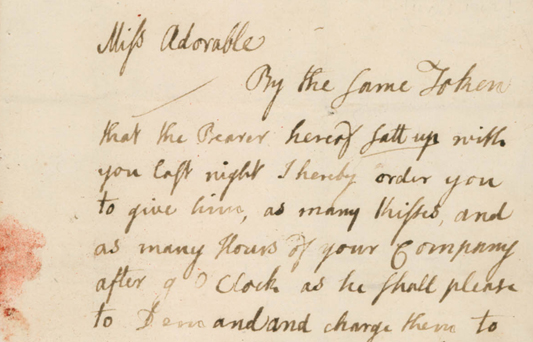 Miss Adorable
By the same Token
that the Bearer hereof satt up with
you last night I hereby order you
to give him, as many Kisses, and
as many Hours of your Company
after 9 O Clock as he shall please
to Demand and charge them to